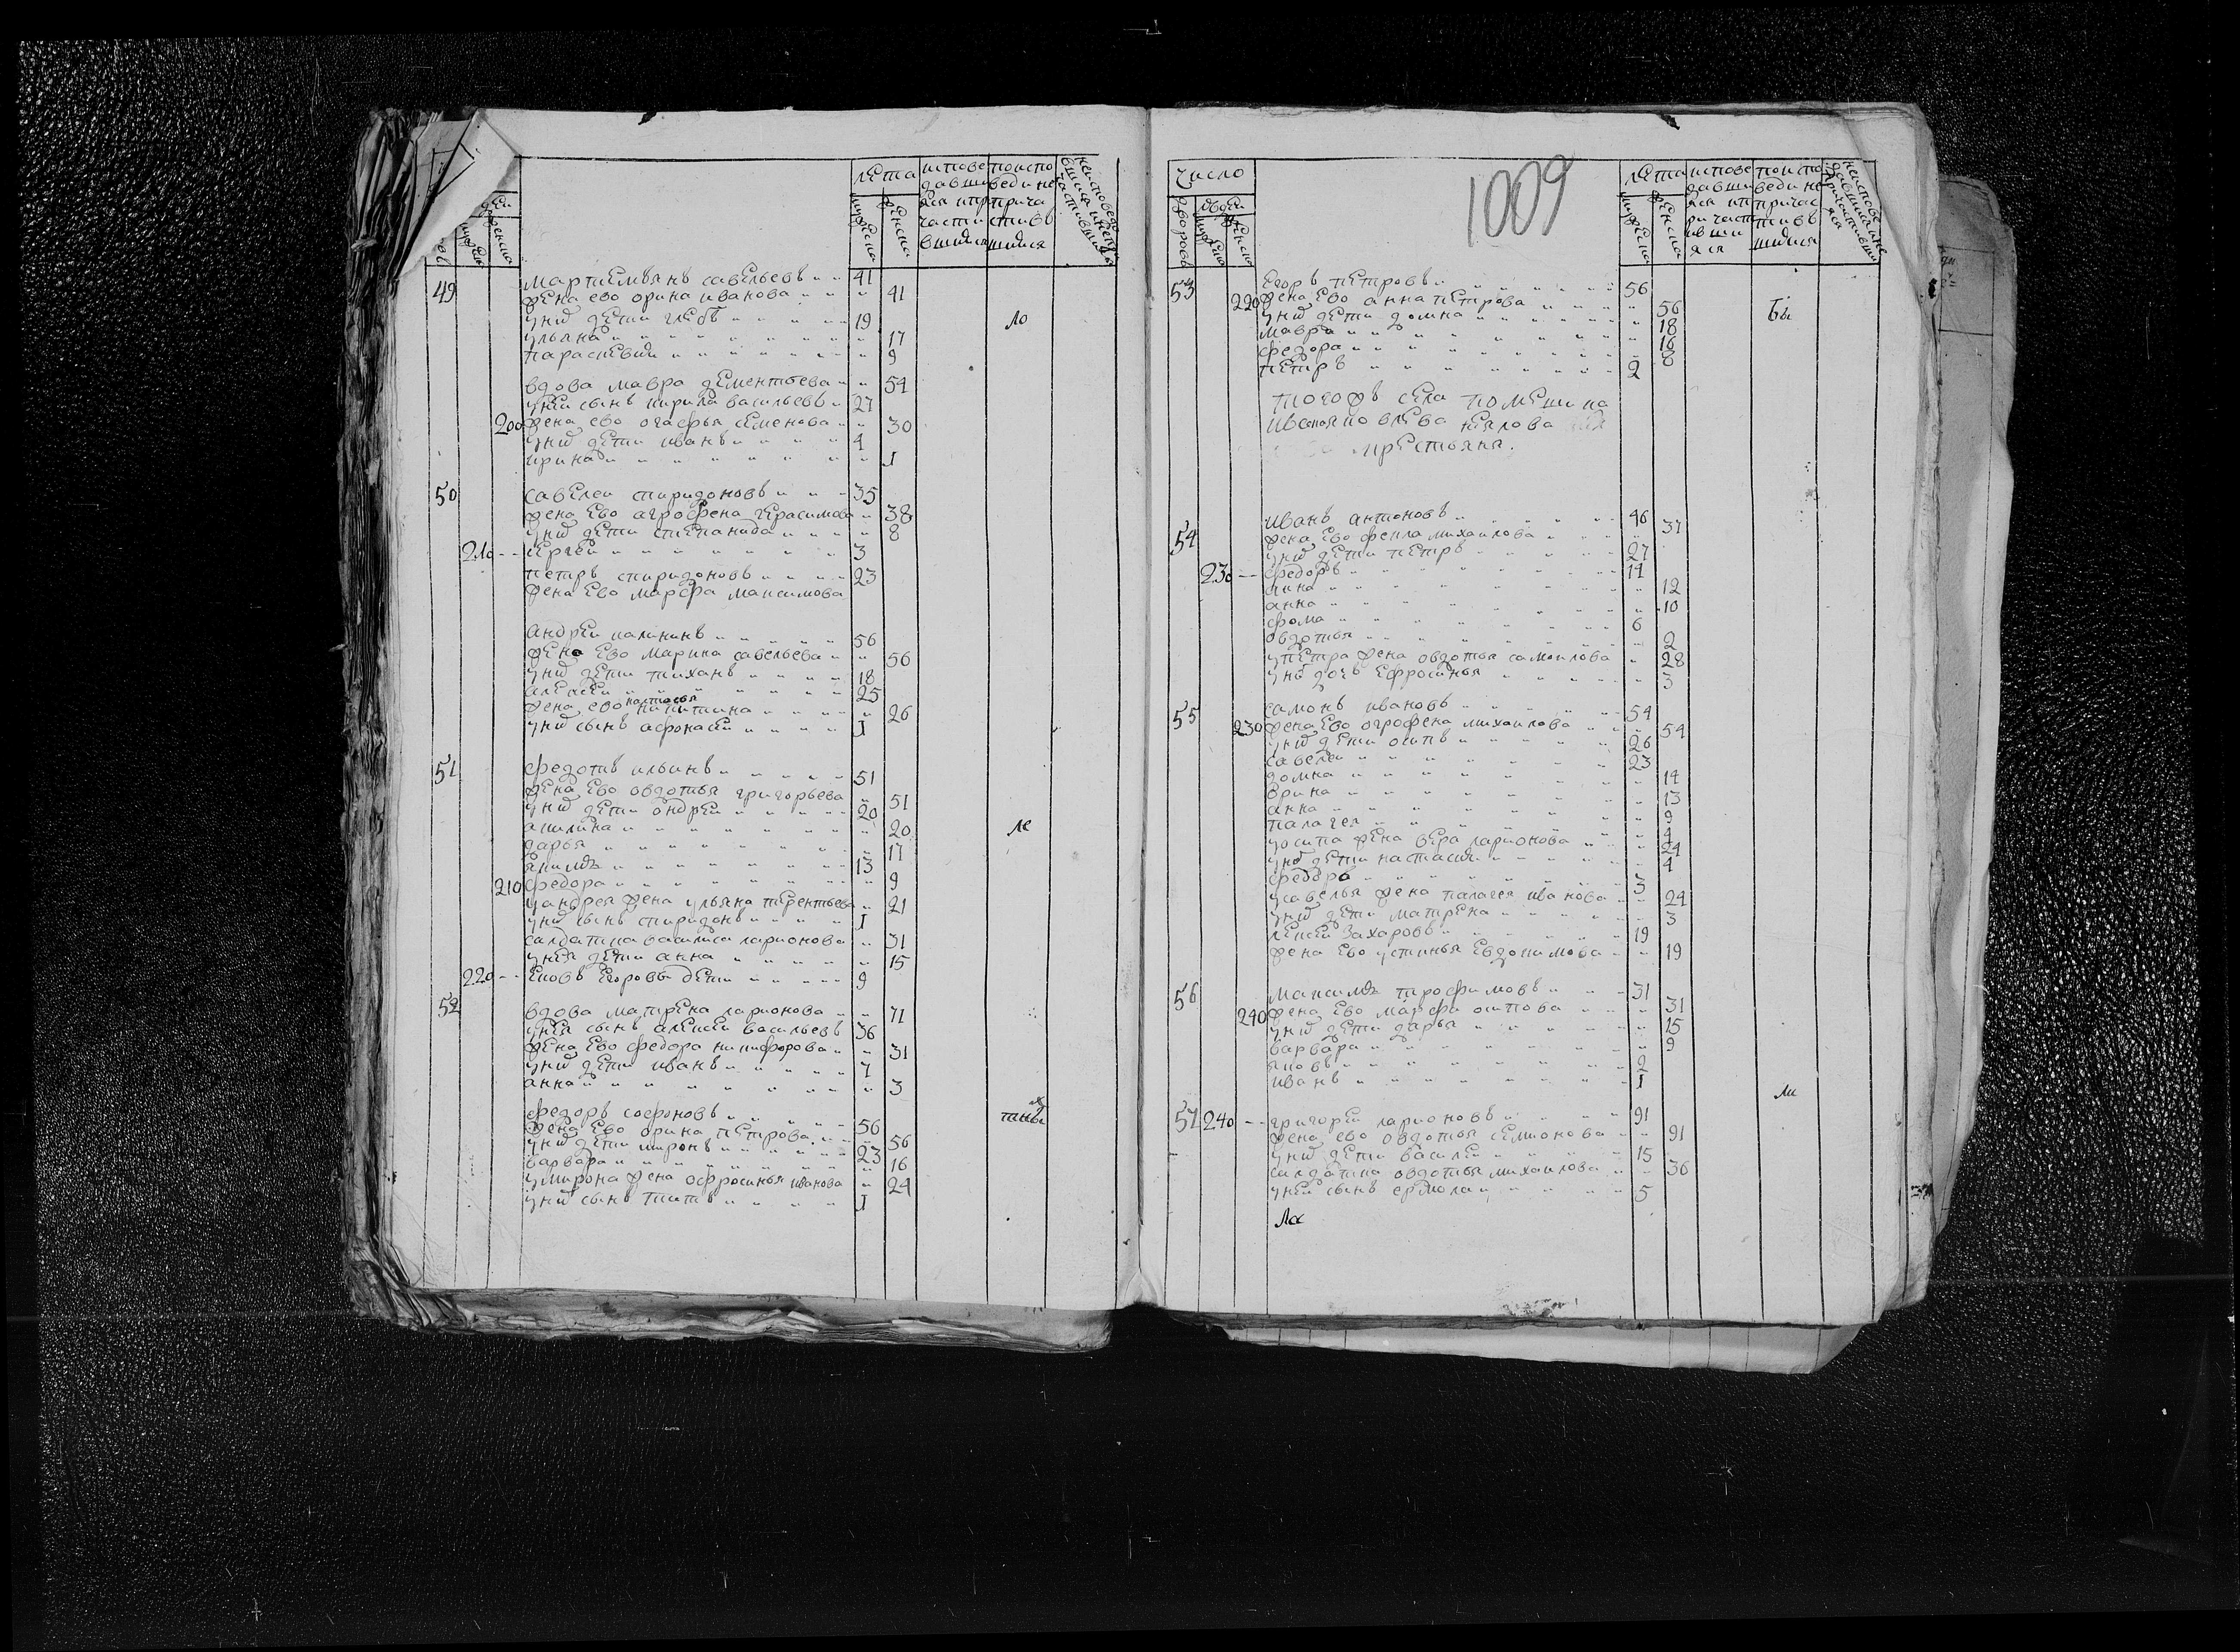 лета
исповедавшияся и причастившияся
по исповеди не причастившияся
мужеска
женска
49 мартемьянъ савельевъ 41
жена ево орина иванова 41
уних дети глебъ 19
ульяна 17
парасковия 9
ло
вдова мавра дементьева 54
унеи сынъ кирила васильевъ 27
200 жена ево огафья семенова 30
уних дети иванъ 4
ирина 1
50 савелеи спиридоновъ 35
жена ево агрофена герасимова 38
уних дети степанида 8
210 сергеи 3
петръ спиридоновъ 23
жена ево марфа максимова
андреи калининъ 56
жена ево марина савельева 56
уних дети тиханъ 18
алексеи 25
жена ево настасья никитина 26
уних сынъ афонасеи 1
51 федотъ ильинъ 51
жена ево овдотья григорьева 51
уних дети ондреи 20
акилина 20
ле
дарья 17
акимъ 13
210 федора 9
уандрея жена ульяна терентьева 21
уних сынъ спиридонъ 1
салдатка василиса ларионова 31
унея дети анна 15
220 ековъ егоровы дети 9
52 вдова матрена ларионова 71
унея сынъ алексеи васильевъ 36
жена ево федора никифорова 31
уних дети иванъ 7
анна 3
федоръ софоновъ 56
жена ево орина петрова 56
уних дети миронъ 23
варвара 16
умирона жена офросинья иванова 24
уних сынъ титъ 1
число
1009
лета
дворовъ
мужеска
женска
53 егоръ петровъ 56
220 жена ево анна петрова 56
уних дети домна 18
бы
мавра 16
федора 8
петръ 2
тогожъ села помещика
крестьяна.
54 иванъ антоновъ 46
жена ево фекла михаилова 37
уних дети петръ 27
230 федоръ 17
анна 12
анна 10
фома 6
овдотья 2
упетра жена овдотья самоилова 28
унеъ дочь ефросинья 3
55 самонъ ивановъ 54
230 жена ево огрофена михаилова 54
уних дети осипъ 26
савелеи 23
домна 14
орина 13
анна 9
палагея 4
уосипа жена вера ларионова 24
унеъ дети настасия 4
федоръ 3
усавелья жена палагея иванова 24
уних дети матрена 3
лексеи захаровъ 19
жена ево устинья евдокимова 19
56 максимъ трофимовъ 31
240 жена ево марфа осипова 31
уних дети дарья 15
варвара 9
яковъ 2
иванъ 1
ли
57 240 григореи ларионовъ 91
жена ево овдотья семионова 91
уних дети василеи 15
салдатка овдотья михаилова 36
унеи сынъ ермола 5